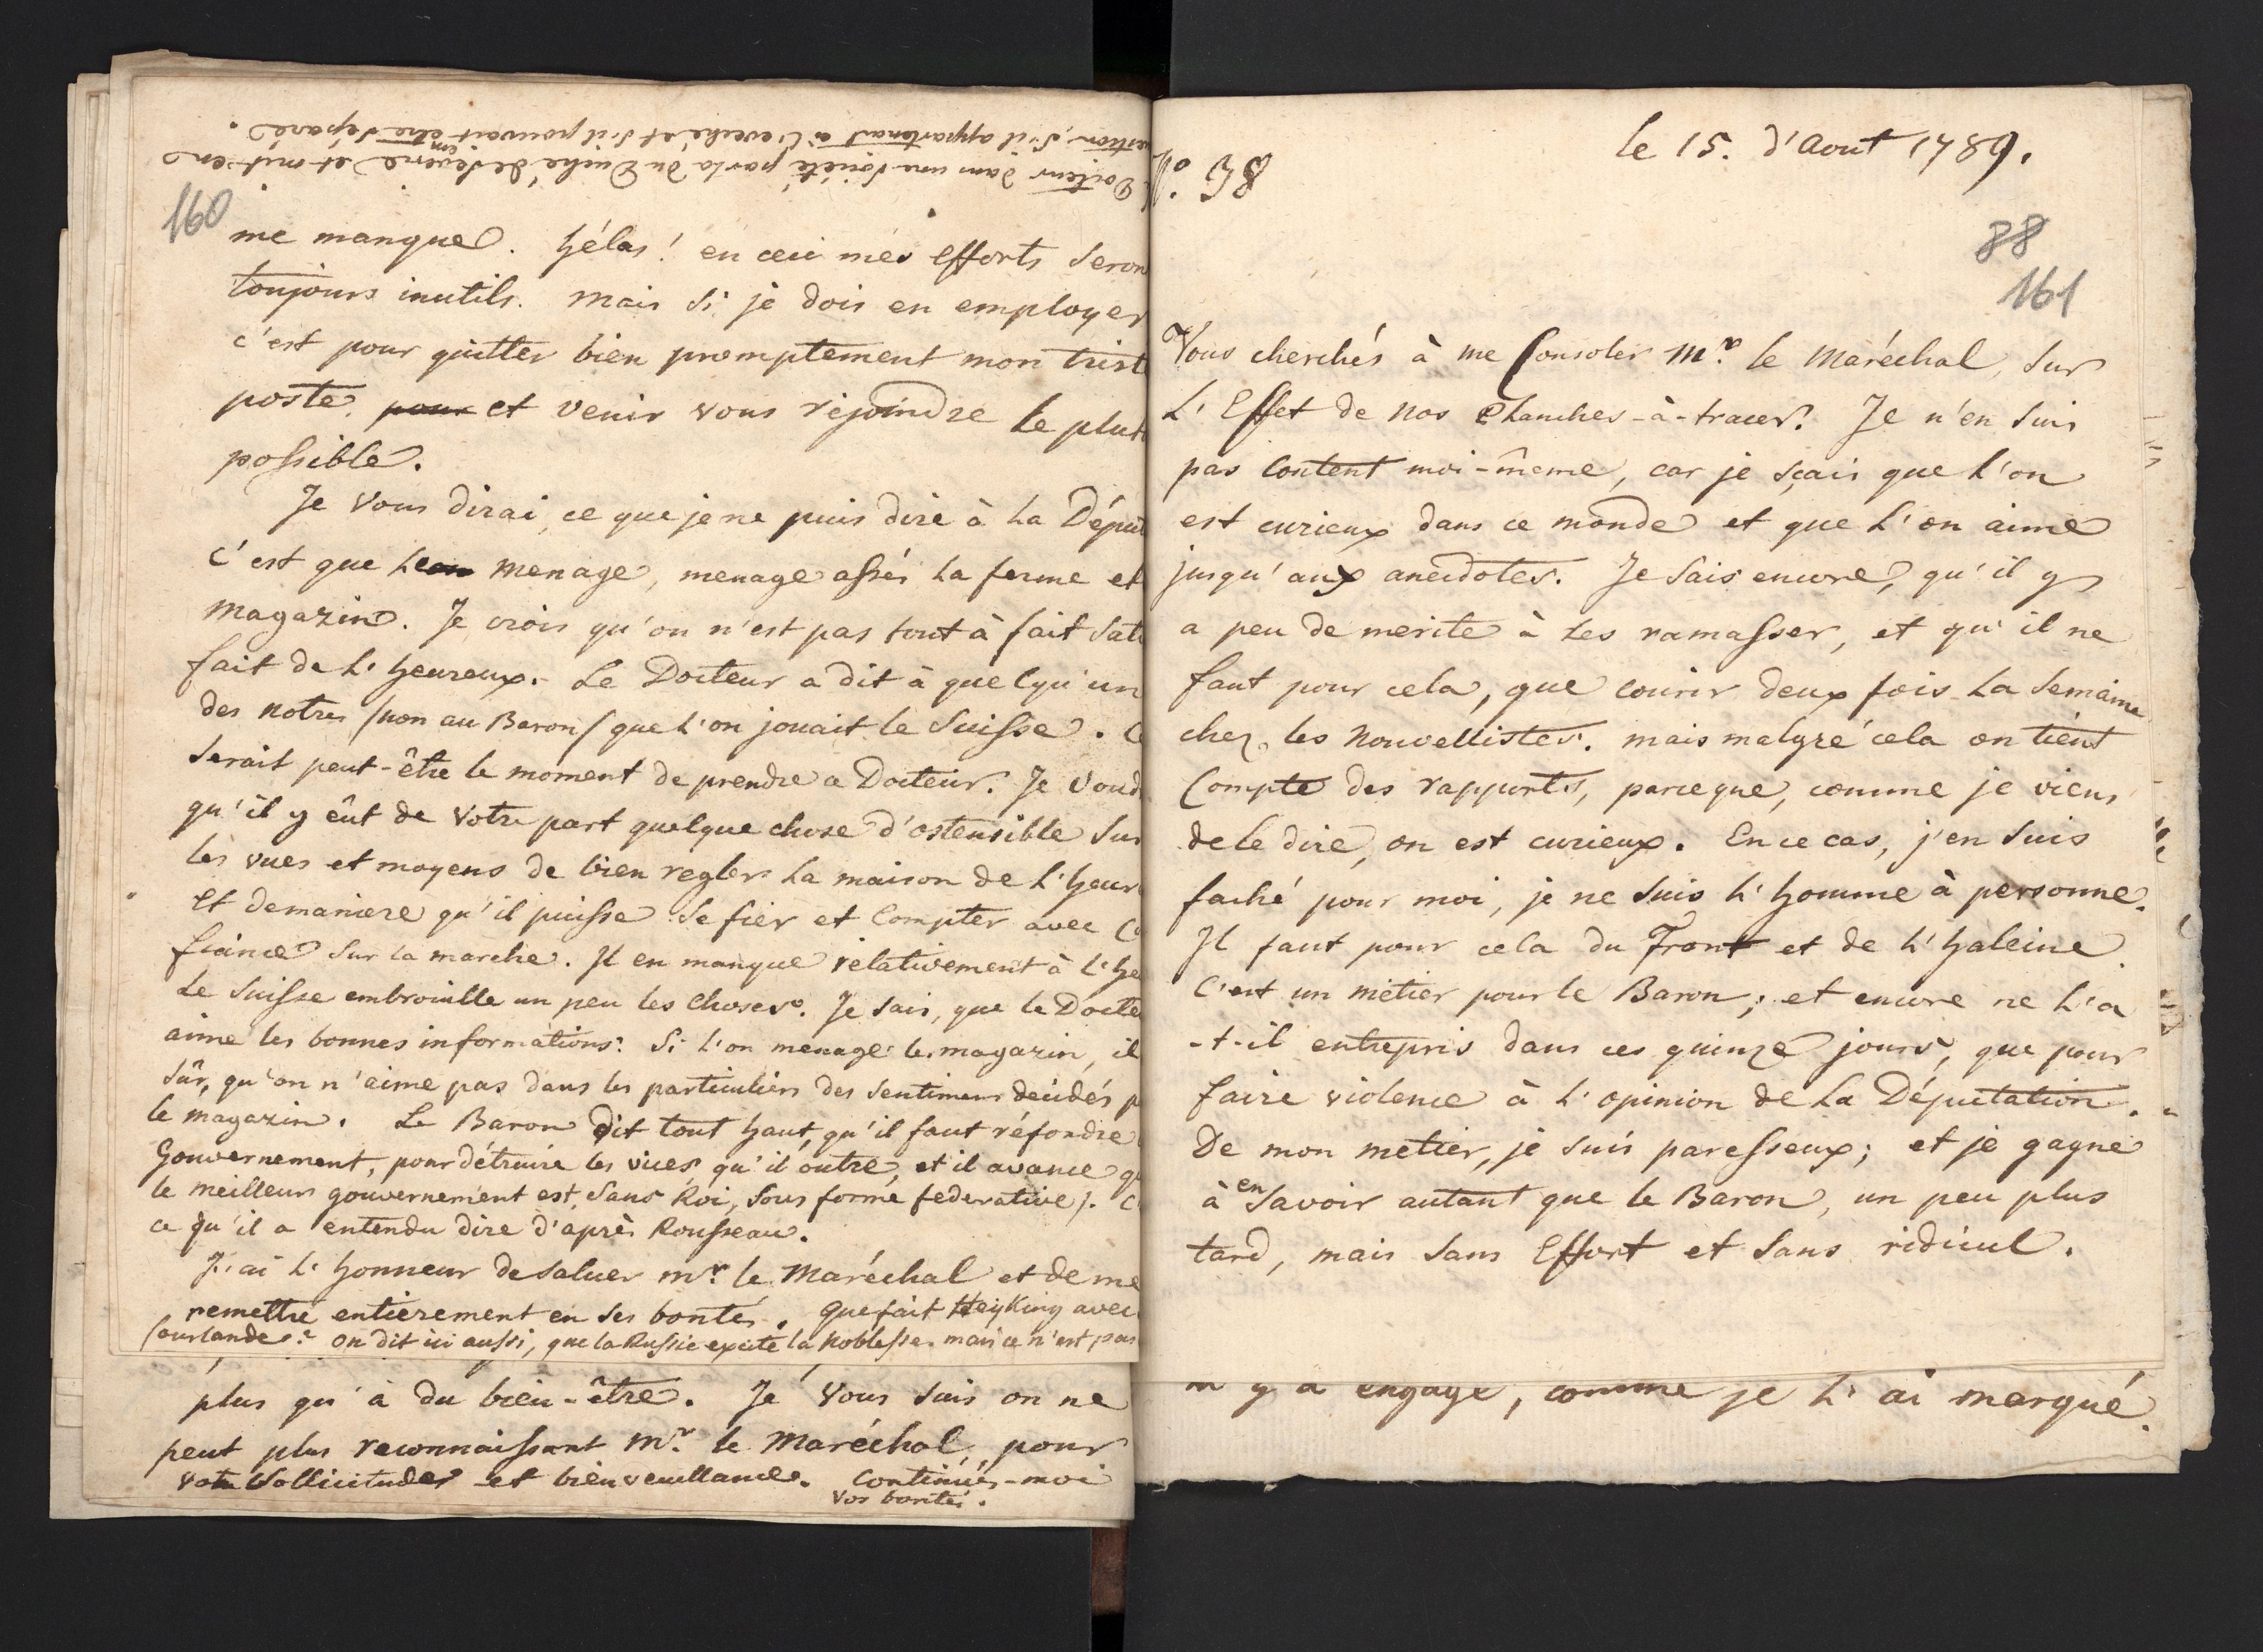 Docteur dans une Societé parla du Duché de Severie et mit en
question, s'il appartenait à l'eveché et s'il pouvait en être séparé.
160
me manque. Hélas! en ceci mes efforts seron
toujours inutils. Mais si je dois en employer
c'est pour quitter bien promptement mon trist
poste, pour et venir vous rejoindre le plut
possible.
Je vous dirai, ce que je ne puis dire à la Déput
c'est que menage, menage assés la ferme et
magazin. Je crois qu'on n'est pas tout à fait sati
fait de L'heureux. Le Docteur a dit à quelqu'un
des notres (non au Baron) que l'on jouait le Suisse. Ce
serait peut-être le moment de prendre ce Docteur. Je voud
qu'il y eût de votre part quelque chose d'ostensible sur
les vues et moyens de bien regler la maison de L'heur
et de maniere qu'il puisse se fier et compter avec Co
fiance sur la marche. Il en manque relativement à L'he
Le Suisse embrouille un peu les choses. Je sais, que le Docte
aime les bonnes informations. Si l'on menage le magazin, il
sûr, qu'on n'aime pas dans les particuliers des sentimens decidés p
le magazin. Le Baron dit tout haut, qu'il faut réfondre
Gouvernement, pour détruire les vices qu'il outre, et il avance q
le meilleur gouvernement est, sans Roi, sous forme federative). C
ce qu'il a entendu dire d'après Rousseau.
J'ai l'honneur de saluer Mr. le Maréchal et de me
remettre entièrement en ses bontés. Que fait Heyking avec
Courlande? On dit ici aussi, que la Russie excite la Noblesse. mais ce n'est pas
plus qu'à du bien-être. Je vous suis on ne
peut plus reconnaissant Mr. le Maréchal, pour
votre sollicitude et bienveuillance. Continués-moi
vos bontés.
le 15. d'Aout 1789.
No. 38
88
161
Vous cherchés à me Consoler Mr. le Maréchal, sur
L'Effet de nos Planches-à-tracer. Je n'en suis
pas Content moi-même, car je sçais que l'on
est curieux dans ce monde et que l'on aime
jusqu'aux anecdotes. Je sais encore, qu'il y
a peu de merite à les ramasser, et qu'il ne
faut pour cela, que courir deux fois la Semaine
chez les Nouvellistes. mais malgré cela on tient
Compte des rapports, parceque, comme je viens
de le dire, on est curieux. En ce cas, j'en suis
faché pour moi, je ne suis l'homme à personne.
Il faut pour cela du Front et de l'haleine.
C'est un métier pour le Baron; et encore ne l'a
-t-il entrepris dans ces quinze jours, que pour
faire violence à l'opinion de la Députation.
De mon metier, je suis paresseux; et je gagne
à en savoir autant que le Baron, un peu plus
tard, mais sans Effort et sans ridicul.
m'y a engagé, comme je l'ai marqué.